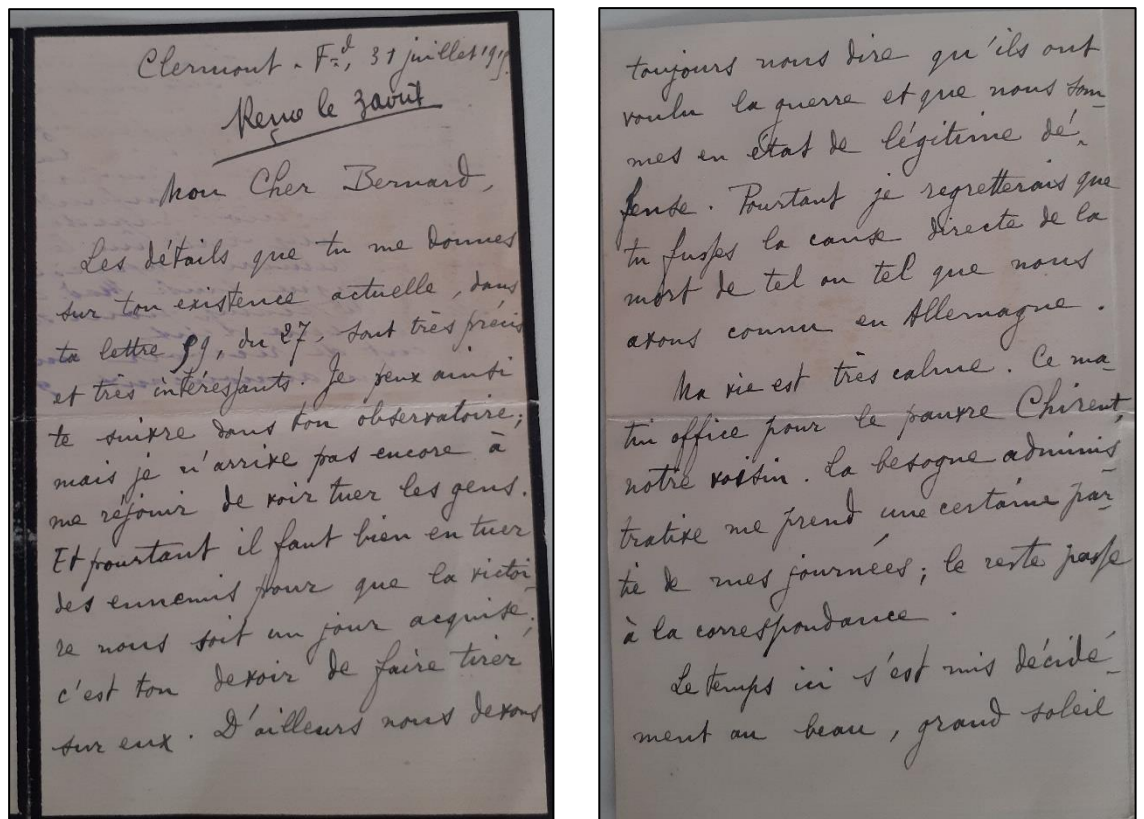 Clermont - Fd, 31 juillet 1915.
Reçue le 3 août
Mon Cher Bernard,
Les détails que tu me donnes
sur ton existence actuelle, dans
ta lettre 59, du 27, sont très précis
et très intéressants. Je peux ainsi
te suivre dans ton observatoire;
mais je n'arrive pas encore à
me réjouir de voir tuer les gens.
Et pourtant il faut bien en tuer
des ennemis pour que la victoi-
re nous soit un jour acquise;
c'est ton devoir de faire tirer
sur eux. D'ailleurs nous devons
toujours nous dire qu'ils ont
voulu la guerre et que nous som-
mes en état de légitime dé-
fense. Pourtant je regretterais que
tu fusses la cause directe de la
mort de tel ou tel que nous
avons connu en Allemagne.
Ma vie est très calme. Ce ma-
tin office pour le pauvre Chirent,
notre voisin. La besogne adminis
trative me prend une certaine par-
tie de mes journées; le reste passe
à la correspondance.
Le temps ici s'est mis décidé-
ment au beau, grand soleil